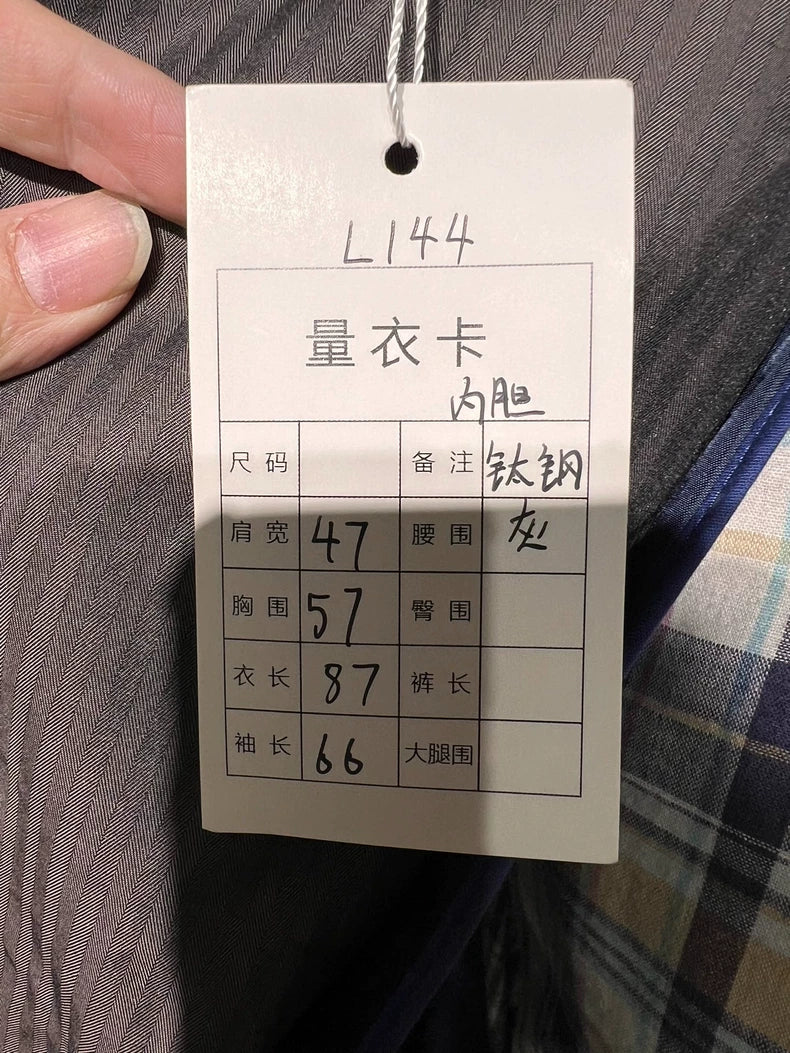 L144
量衣卡
内胆
尺码 备注 钛钢
肩宽 47 腰围 灰
胸围 57 臀围
衣长 87 裤长
袖长 66 大腿围